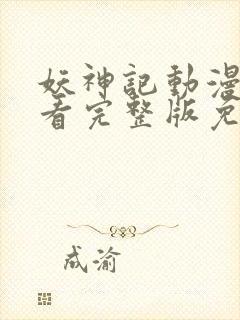 妖神記動漫
看完整版免
成渝